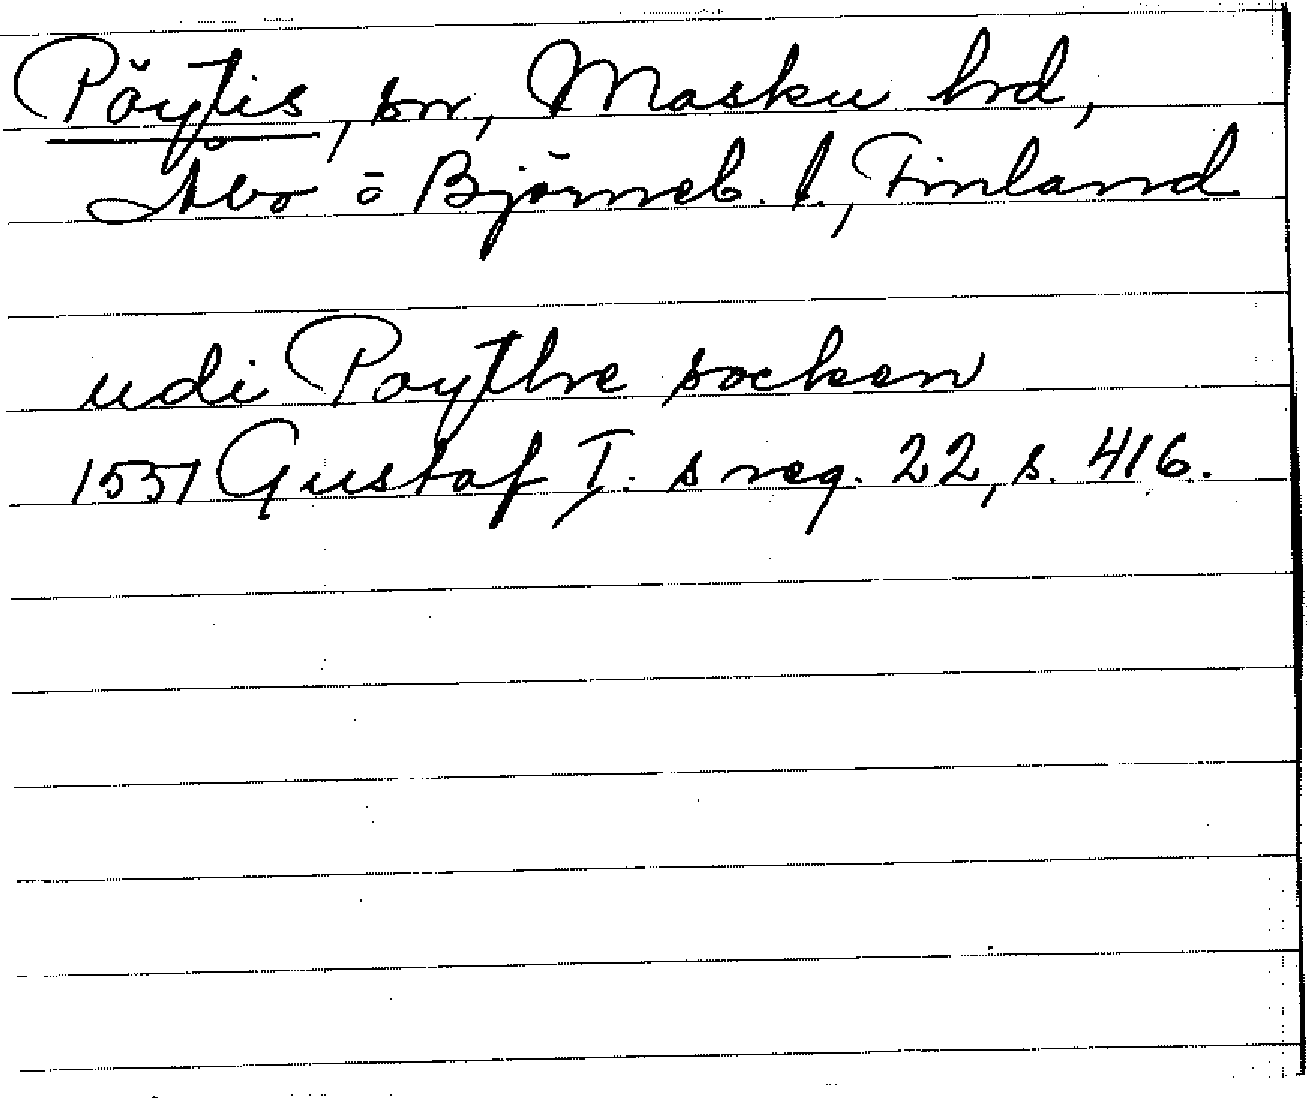 Pöytis, sn, Masku hd,
Åbo o Björneb. l., Finland
udi Poythre socken
1551 Gustaf I. s reg. 22, s. 416.